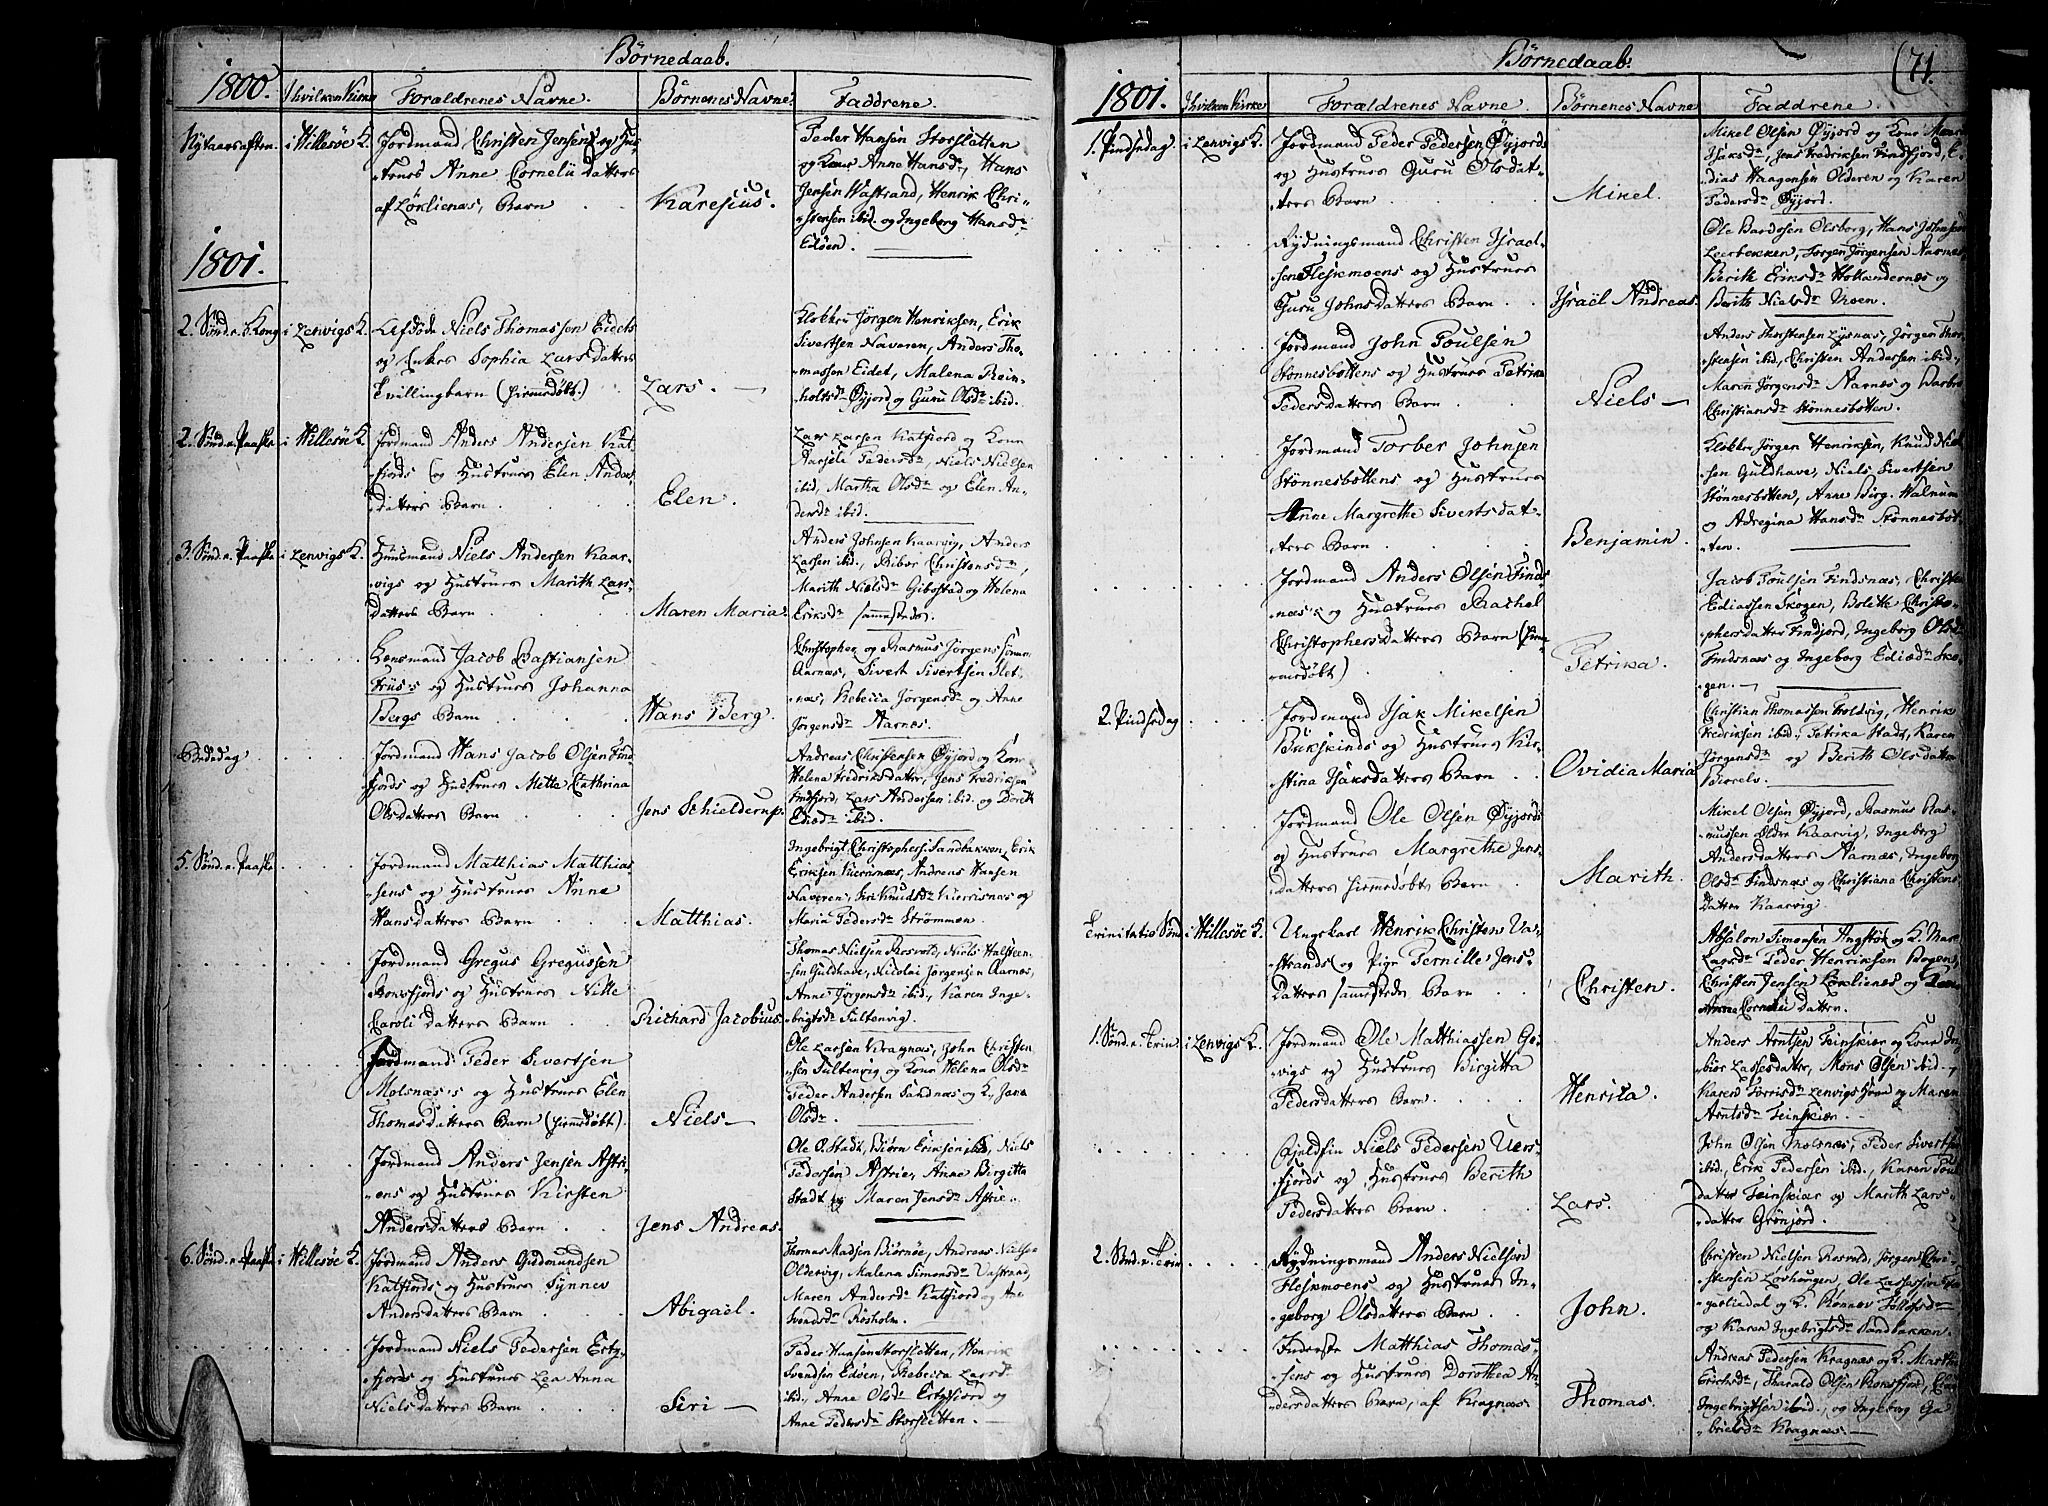 Børnedaab.
1800.
I hvilken Kirke
Forældrenes Navne.
Børnenes Navne.
Faddrene.
Nytaarsaften.
i Hillesøe K.
Jordmand Christen Jensens og Hu-
strues Anne Cornelii datters
af Løklienæs, Barn
Karesius.
Peder Hansen Storsletten
og Kone Anne Hansdr, Hans
Jensen Wastrand, Henrik Chri-
stensen ibid. og Ingeborg Hansdr
Edøen.
1801.
2. Sønd. e. h. 3 Kong.
i Lenvigs K.
Afdøde Niels Thomassen Eidets
og Enkes Sophia Larsdatters
Tvillingbarn (hiemdøbt.)
Lars.
Klokker Jørgen Henriksen, Erik
Sivertsen Naveren, Anders Tho-
massen Eidet, Malena Rein-
holtsdr Øyjord og Guru Olsdr ibid.
2. Sønd. e. Paaske
i Hillesøe K.
Jordmand Anders Andersen Kat-
fjords og Hustrues Elen Anders
datters Barn
Elen.
Lars Larsen Katfjord og Kone
Marsele Pedersdr, Niels Nielsen
ibid, Martha Olsdr og Elen An-
dersdr ibid.
3. Sønd. e. Paaske
i Lenvigs K.
Huusmand Niels Andersen Kaar-
vigs og Hustrues Marith Lars-
datters Barn
Maren Maria.
Anders Johnsen Kaarvig, Anders
Larsen ibid., Bibor Christensdr,
Marith Nielsdr Gibostad og Helena
Eriksdr sammesteds.
Lensmand Jacob Bastiansen
Friis's og Hustrues Johanna
Bergs Barn
Hans Berg.
Christopher og Rasmus Jørgens Sønner
Aarnæs, Sivert Sivertsen Slet-
næs, Rebecca Jørgensdr og Anne
Jørgensdr Aarnæs.
Bededag
Jordmand Hans Jacob Olsen Find-
fjords og Hustrues Mette Cathrina
Olsdatters Barn
Jens Schielderup.
Andreas Christensen Øyjord og Kone
Helena Fredriksdatter, Jens Fredriksen
Findfjord, Lars Andersen ibid. og Dorith
Ediædr ibid.
5. Sønd. e. Paaske
Jordmand Matthias Matthias
sens og Hustrues Anne
Hansdatters Barn
Matthias.
Ingebrigt Christophers. Sandbakken, Erik
Eriksen Kierrisnæs, Andreas Hansen
Naveren, Siri Knudsdr Kierrisnæs og
Maria Pedersdr Strømmen.
Jordmand Gregus Gregussen
Bonsfjords og Hustrues Nille
Caroli datters Barn
Richard Jacobius.
Thomas Nielsen Rosvold, Niels Halsteen-
sen Guldhave, Nicolai Jørgensen Aarnæs,
Anne Jørgensdr ibid., Karen Inge-
brigtsdr Sultenvig.
Jordmand Peder Sivertsen
Molsnæs's og Hustrues Elen
Thomasdatters Barn (hiemdøbt).
Niels
Ole Larsen Kragnæs, John Christen
sen Sultenvig og Kone Helena Olsdr
Peder Andersen Sandnæs og K. Jana
Olsdr
Jordmand Anders Jensen Astri-
ens og Hustrues Kirsten
Andersdatters Barn
Jens Andreas.
Ole O. Stadt, Biørn Eriksen ibid, Niels
Pedersen Astrie, Anne Birgitta
Stadt og Maren Jensdr Astrie.
6. Sønd. e. Paaske
i Hillesøe K.
Jordmand Anders Gudmundsen
Katfjords og Hustrues Synnev
Andersdatters Barn
Abigael.
Thomas Madsen Biørnøe, Andreas Nielsen
Oldervig, Malena Simonsdr Vastrand,
Maren Andersdr Katfjord og Ane
Svendsdr Rosholm.
Jordmand Niels Pedersen Erty-
fjords og Hustrues Lea Anna
Nielsdatters Barn
Siri
Peder Hansen Storsletten, Henrik
Svendsen Edøen, Rebecca Larsdr
ibid., Anne Olsdr Ertyfjord og
Anne Pedersdr Storsletten.
Børnedaab.
(71.
1801.
I hvilken Kirke
Forældrenes Navne.
Børnenes Navne
Faddrene.
1. Pindsedag
i Lenvigs K.
Jordmand Peder Pedersen Øyjords
og Hustrues Guru Olsdat-
ters Barn
Mikel.
Mikel Olsen Øyjord og Kone
Isaksdr, Jens Fredriksen Findfjord, E-
dias Haagensen Olderen og Karen
Pedersdr Øyjord.
Rydningsmand Christen Israel-
sens Fleskmoens og Hustrues
Guru Johnsdatters Barn
Israël Andreas.
Ole Bardosen Olsborg, Hans Johnsen
Leerbekken, Jørgen Jørgensen Aarnæs
Berith Eriksdr Hollandernæs og
Berith Nielsdr Moen.
Jordmand John Poulsen
Stønnesbottens og Hustrues Petrika
Pedersdatters Barn
Niels
Anders Thorstensen Lysnæs, Jørgen Thor-
stensen ibid, Christen Andersen ibid.,
Maren Jørgensdr Aarnæs og Barbro
Christiansdr Stønnesbotten.
Jordmand Torber Johnsen
Stønnesbottens og Hustrues
Anne Margrethe Sivertsdat-
ters Barn
Benjamin.
Klokker Jørgen Henriksen, Knud Niel-
sen Guldhave, Niels Sivertsen
Stønnesbotten, Anne Birg. Walnum
og Adregina Hansdr Stønnesbot-
ten.
Jordmand Anders Olsen Finds-
næs's og Hustrues Rachel
Christophersdatters Barn (hie-
medøbt)
Petrika.
Jacob Poulsen Findsnæs, Christen
Ediassen Skogen, Bolith Christo-
phersdatter Findjord, Ingeborg Olsdr
Findsnæs og Ingeborg Ediædr Sko-
gen.
2. Pindsedag
Jordmand Isak Mikelsen
Bukskinds og Hustrues Kir-
stina Isaksdatters Barn
Ovidia Maria
Christian Thomassen Troldvig, Henrik
Fredriksen ibid., Petrika Stadt, Karen
Jørgensdr og Berith Olsdatter
Biorelv.
Jordmand Ole Olsen Øyjords
og Hustrues Margrethe Jens-
datters hiemmedøbt Barn
Marith.
Mikel Olsen Øyjord, Rasmus Ras-
mussen Older Kaarvig, Ingeborg
Andersdatter Aarnæs, Ingeborg
Olsdr Findsnæs og Christiana Christens-
datter Kaarvig.
Trinitatis Sønd.
i Hillesøe K.
Ungkarl Henrik Christens Va-
strands og Pige Pernille Jens
Datters sammesteds Barn
Christen.
Absalon Simonsen Angstøe og K. Mar
Larsdr Peder Henriksen Bogen,
Christen Jensen Løklienæs og
Anne Cornelii datter.
1. Sønd. e. Trin.
i Lenvigs K.
Jordmand Ole Matthiassen Ge-
vigs og Hustrues Birgitta
Pedersdatters Barn
Henrika.
Anders Arntsen Teinskiær og Kone In-
bior Lassesdatter, Mons Olsen ibid.
Karen Torrisdr Lenvigs Hvan og Maren
Arntsdr Teinskiær.
Fjeldfin Niels Pedersen Veers-
fjords og Hustrues Berith
Pedersdatters Barn
Lars.
John Olsen Molsnæs, Peder Sivertsen
ibid, Erik Pedersen ibid., Karen Poul
datter Teinskiær og Marith Lars-
datter Grønjord.
2. Sønd. e. Trin
Rydningsmand Anders Nielsen
Fleskmoens og Hustrues In-
geborg Olsdatters Barn
John.
Christen Nielsen Rosvold, Jørgen Chri-
stensen Lovhaugen, Ole Lassesen
og K. Rønnev
og Karen Ingebrigtsdr Sandbakken.
Inderste Matthias Thomas-
sens og Hustrues Dorothea An-
dersdatters Barn, af Kragnæs
Thomas.
Andreas Pedersen Kragnæs og K. Marthe
Erichsdr, Tharald Olsen Bonsfjord,
Ingebrigtsen ibid., og Ingeborg Ga-
brielsdr Kragnæs.